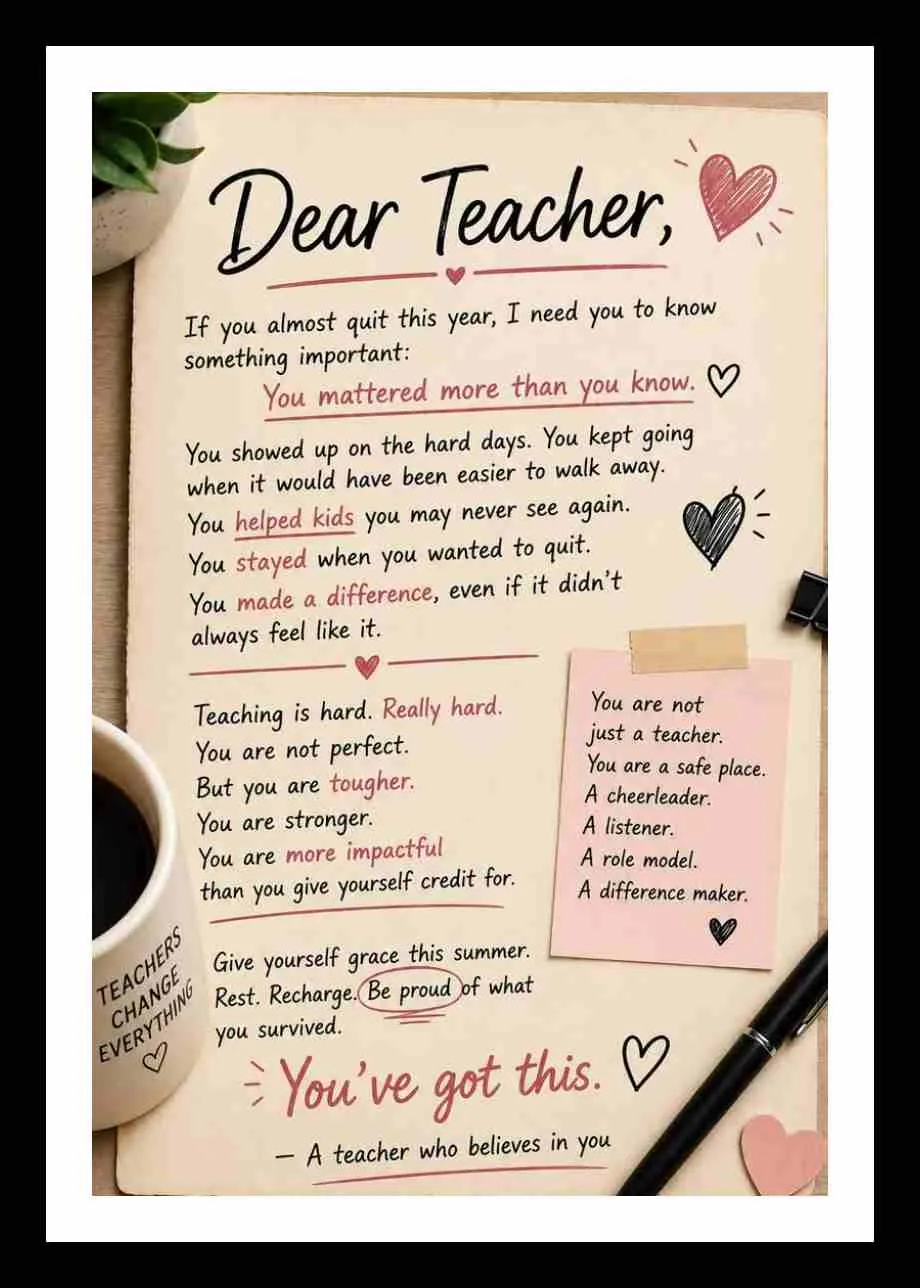 Dear Teacher,
If you almost quit this year, I need you to know
something important:
You mattered more than you know.
You showed up on the hard days. You kept going
when it would have been easier to walk away.
You helped kids you may never see again.
You stayed when you wanted to quit.
You made a difference, even if it didn't
always feel like it.
Teaching is hard. Really hard.
You are not perfect.
But you are tougher.
You are stronger.
You are more impactful
than you give yourself credit for.
You are not
just a teacher.
You are a safe place.
A cheerleader.
A listener.
A role model.
A difference maker.
Give yourself grace this summer.
Rest. Recharge. Be proud of what
you survived.
You've got this.
— A teacher who believes in you
TEACHERS
CHANGE
EVERYTHING